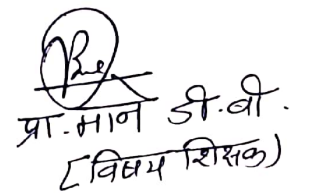 प्रा. माने डी. बी.
(विषय शिक्षक)